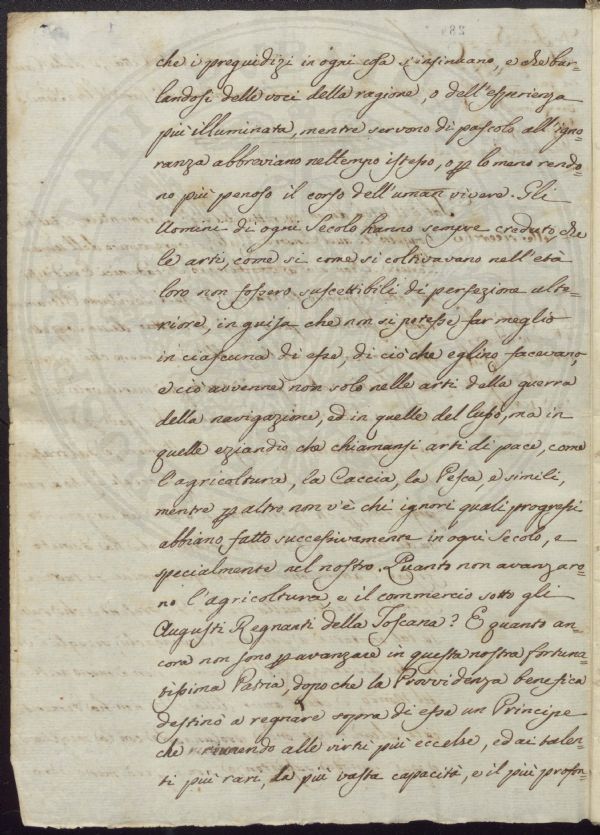 che i pregiudizi in ogni cosa s'insinuano, e che bur-
landosi delle voci della ragione, o dell'esperienza
più illuminata, mentre servono di pascolo all'igno-
ranza abbreviano nel tempo istesso, o p lo meno rendo-
no più penoso il corso dell'uman vivere. Gli
Uomini di ogni Secolo hanno sempre creduto, che
le arti, come si come si coltivavano nell'età
loro non fossero suscettibili di perfezione ulte-
riore, in guisa che non si potesse far meglio
in ciascuna di esse, di ciò che eglino facevano,
e ciò avvenne non solo nelle arti della guerra
della navigazione, ed in quelle del lusso, ma in
quelle eziandio che chiamansi arti di pace, come
l'agricoltura, la Caccia, la Pesca, e simili,
mentre p altro non v'è chi ignori quali progressi
abbiano fatto successivamente in ogni Secolo, e
specialmente nel nostro. Quanto non avanzaro-
no l'agricoltura, e il commercio sotto gli
Augusti Regnanti della Toscana? E quanto an-
cora non sono p avanzare in questa nostra fortuna-
tissima Patria, dopo che la Provvidenza benefica
destinò a regnare sopra di essa un Principe
che riunendo alle virtù più eccelse, ed ai talen-
ti più rari, la più vasta capacità, e il più profon-